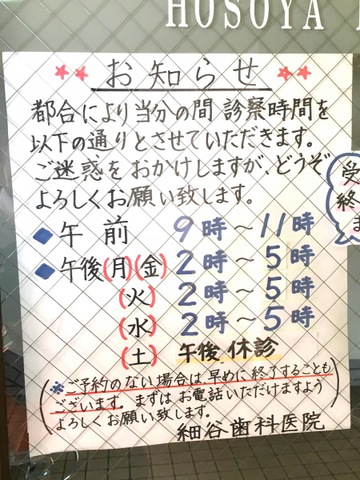 HOSOYA
お知らせ
都合により当分の間 診察時間を
以下の通りとさせていただきます。
ご迷惑をおかけしますが、どうぞ
よろしくお願い致します。
◆午前 9時～11時
◆午後(月)(金) 2時～5時
(火) 2時～5時
(水) 2時～5時
(土) 午後休診
受
終
ま
(※ご予約のない場合は、早めに終了することも
ございます。まずはお電話いただけますよう
よろしくお願い致します。)
細谷歯科医院